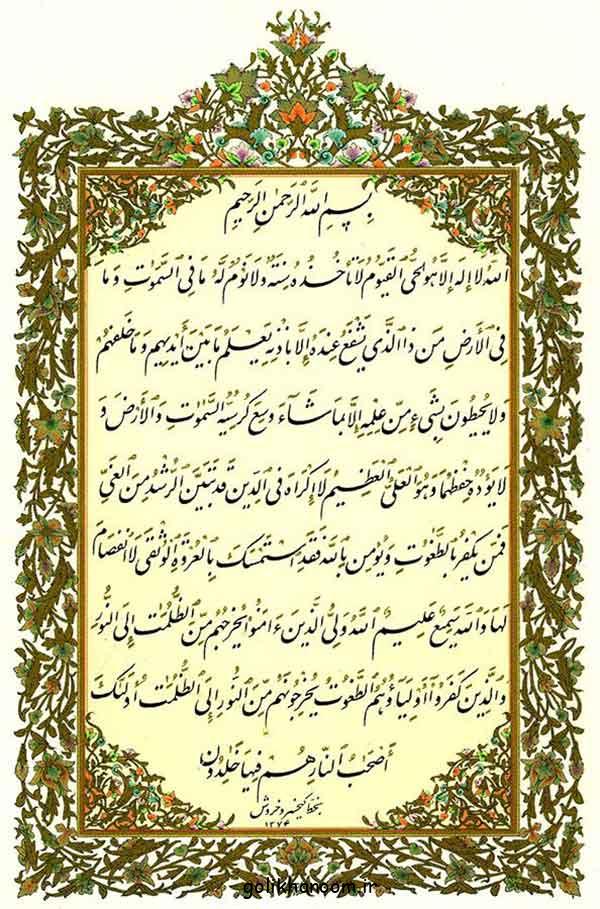 بِسْمِ اللَّهِ الرَّحْمَٰنِ الرَّحِيمِ
اللَّهُ لَا إِلَٰهَ إِلَّا هُوَ الْحَيُّ الْقَيُّومُ لَا تَأْخُذُهُ سِنَةٌ وَلَا نَوْمٌ لَهُ مَا فِي السَّمَٰوَٰتِ وَمَا
فِي الْأَرْضِ مَنْ ذَا الَّذِي يَشْفَعُ عِنْدَهُ إِلَّا بِإِذْنِهِ يَعْلَمُ مَا بَيْنَ أَيْدِيهِمْ وَمَا خَلْفَهُمْ
وَلَا يُحِيطُونَ بِشَيْءٍ مِنْ عِلْمِهِ إِلَّا بِمَا شَاءَ وَسِعَ كُرْسِيُّهُ السَّمَٰوَٰتِ وَالْأَرْضَ وَ
لَا يَؤُدُهُ حِفْظُهُمَا وَهُوَ الْعَلِيُّ الْعَظِيمُ لَا إِكْرَاهَ فِي الدِّينِ قَدْ تَبَيَّنَ الرُّشْدُ مِنَ الْغَيِّ
فَمَنْ يَكْفُرْ بِالطَّٰغُوتِ وَيُؤْمِنْ بِاللَّهِ فَقَدِ اسْتَمْسَكَ بِالْعُرْوَةِ الْوُثْقَىٰ لَا انْفِصَامَ
لَهَا وَاللَّهُ سَمِيعٌ عَلِيمٌ اللَّهُ وَلِيُّ الَّذِينَ ءَامَنُوا يُخْرِجُهُمْ مِنَ الظُّلُمَٰتِ إِلَى النُّورِ
وَالَّذِينَ كَفَرُوا أَوْلِيَاؤُهُمُ الطَّٰغُوتُ يُخْرِجُونَهُمْ مِنَ النُّورِ إِلَى الظُّلُمَٰتِ أُولَٰئِكَ
أَصْحَٰبُ النَّارِ هُمْ فِيهَا خَٰلِدُونَ
بخط کیخسرو خروش
۱۳۷۴
golikhanoom.ir